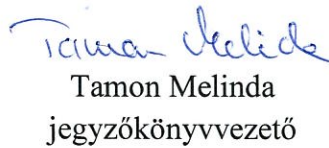 Tamon Melinda
Tamon Melinda
jegyzőkönyvvezető